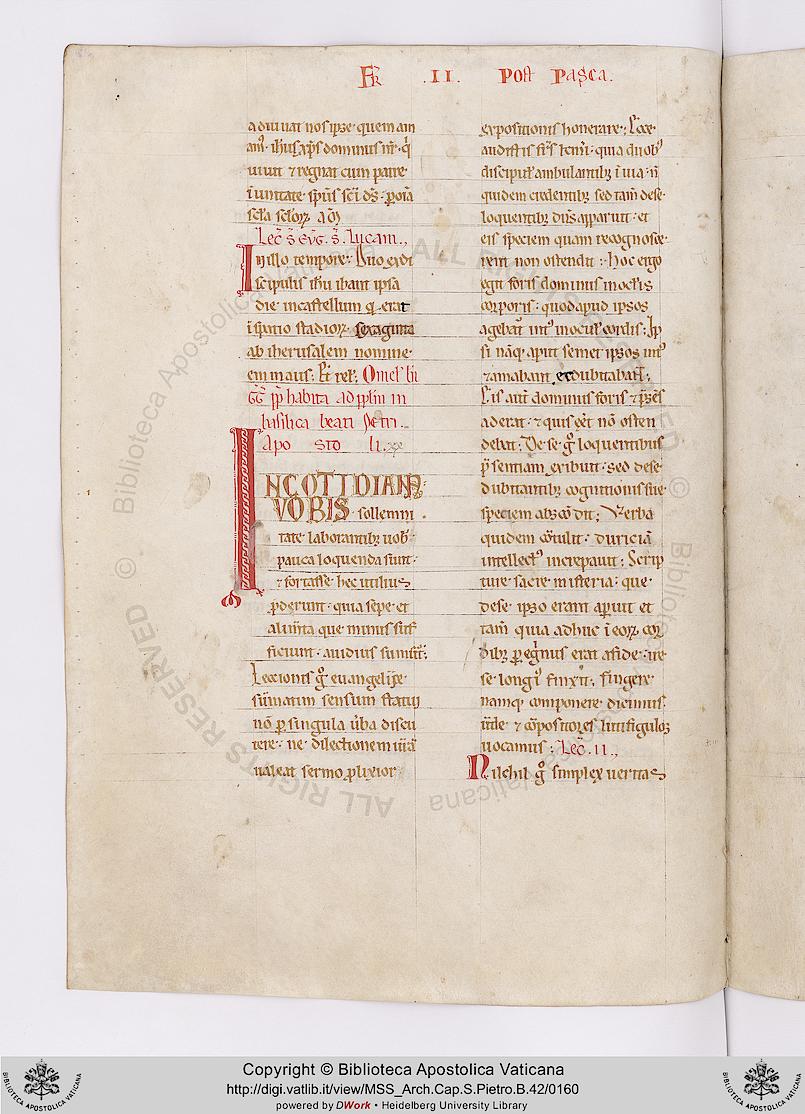 FR .II. Post Pasca.
adiuuat nos ipse quem am
am᷒ ihus xp̄s dominus nr̄. q̇
uiuit et regnat cum patre
ī unitate sp̄us sc̄i ds̄. p oīa
sc̄la sc̄loꝝ am̄
Lec̄. s̄. euḡ. s̄. Lucam.,
In illo tempore: Duo ex di
scipulis ihu ibant ipsa
die in castellum q erat
ī spatio stadioꝝ sexaginta
ab iherusalem nomine
emmaus: Et rel. Omel̄ bī
GḠ pp̄ habita ad pplm in
basilica beati Petri
Apo sto li.
IN COTIDIANIS
VOBIS sollemni
tate laborantibȝ uob᷒
pauca loquenda sunt.
⁊ fortasse hec utilius
ꝓderunt. quia sepe et
alim̄ta que minus suf
ficiunt. auidius sumūt᷒.
Leccionis g̊ euangelice
sūmatim sensum statui
nō p singula uba discu
tere. ne dilectionem urā
ualeat sermo plixior
expositionis honerare; Ecce
audistis frs̄ kmī. quia duob᷒
discipul᷒ ambulantibȝ ī uia. n̄
quidem credentibȝ sed tam̄ de se
loquentibȝ dn̄s apparuit. et
eis speciem quam recognosce
rent non ostendit: Hoc ergo
egit foris dominus in oculis
corporis: quod apud ipsos
agebat᷒ int᷒ in ocul᷒ cordis: Ip
si nāq; aput semet ipsos int᷒
⁊ amabant et dubitabant.
Eis aut̄ dominus foris ⁊ p̄sens
aderat. ⁊ quis eēt nō osten
debat; De se g̊ loquentibus
p̄sentiam exibuit. sed de se
dubitantibȝ cognitionis sue
speciem abscōdit; Verba
quidem cōtulit. duriciā
intellect᷒ increpauit; Scrip
ture sacre misteria. que
de se ipso erant aperuit et
tam̄ quia adhuc ī eoꝝ cor
dibȝ pegn᷒us erat a fide. ire
se longi᷒ finxit. fingere
namq; componere dicimus.
ūde ⁊ cōpositores luti figulos
uocamus: Lec̄. II.,
Nichil g̊ simplex ueritas
Copyright © Biblioteca Apostolica Vaticana
http://digi.vatlib.it/view/MSS_Arch.Cap.S.Pietro.B.42/0160
powered by DWork • Heidelberg University Library